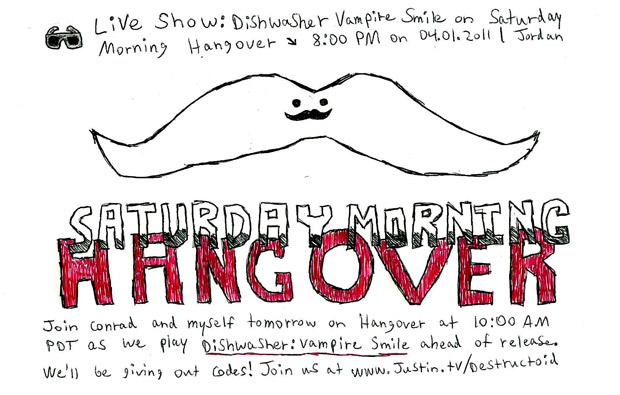 Live Show: Dishwasher Vampire Smile on Saturday
Morning Hangover ↘ 8:00 PM on 04.01.2011 | Jordan
SATURDAY MORNING
HANGOVER
Join Conrad and myself tomorrow on Hangover at 10:00 AM
PDT as we play Dishwasher: Vampire Smile ahead of release.
We'll be giving out codes! Join us at www.Justin.tv/Destructoid